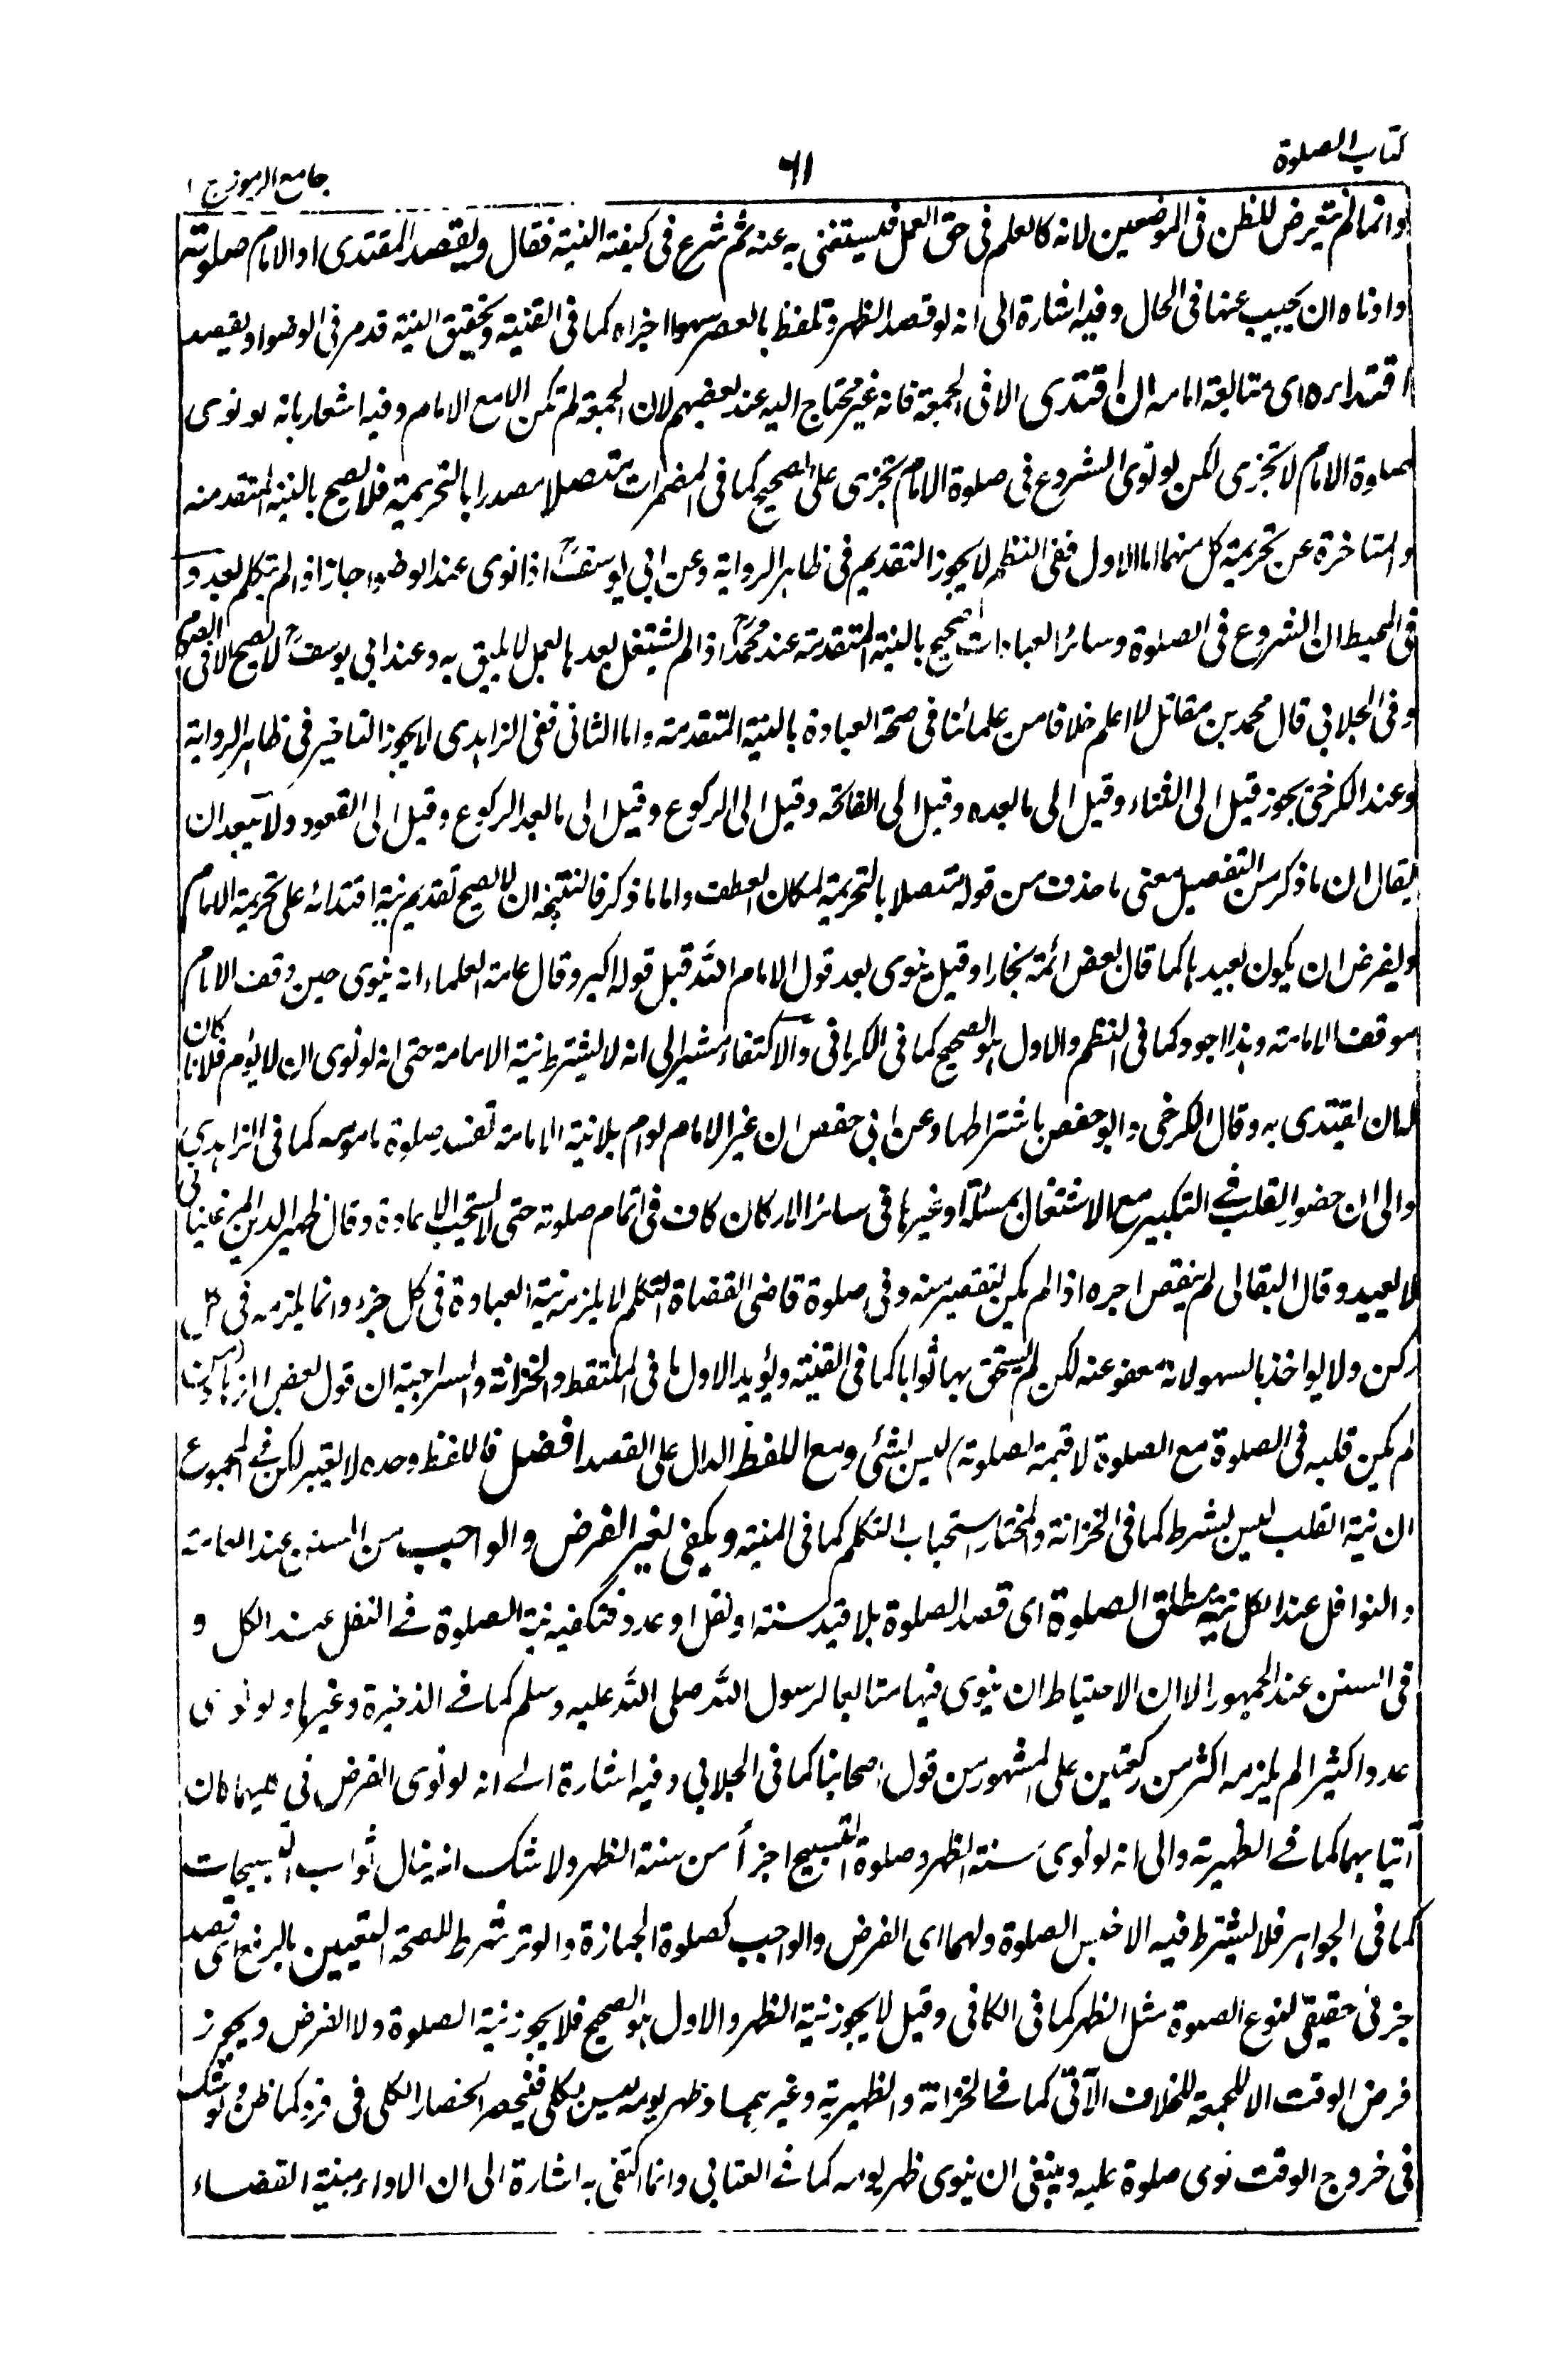 كتاب الصلوة
٦١
جامع الرموز ج ١
وانما لم يتعرض للظن فى الموضعين لانه كالعلم فى حق العمل فيستغنى به عنه ثم شرع فى كيفية النية فقال ويقصد المقتدى او الامام صلوته
وادناه ان يجيب عنها فى الحال وفيه اشارة الى انه لو قصد الظهر وتلفظ بالعصر سهوا اجزاه كما فى القنية وتحقيق النية قد مر فى الوضوء ويقصد
اقتداءه اى متابعة امامه ان اقتدى الا فى الجمعة فانه غير محتاج اليه عند بعضهم لان الجمعة لم تكن الا مع الامام وفيه اشعار بانه لو نوى
صلوة الامام لا تجزى لكن لو نوى الشروع فى صلوة الامام تجزى على الصحيح كما فى المضمرات متصلا مصدرا بالتحريمة فلا يصح بالنية المتقدمة
والمتاخرة عن تحريمة كل منهما اما الاول ففى النظم لا يجوز التقديم فى ظاهر الرواية وعن ابى يوسفؒ اذا نوى عند الوضوء جاز اذ لم يتكلم بعد و
فى المحيط ان الشروع فى الصلوة وسائر العبادات صحيح بالنية المتقدمة عند محمدؒ اذا لم يشتغل بعدها بعمل لا يليق به وعند ابى يوسفؒ لا يصح الا فى الصوم
وفى الجلابى قال محمد بن مقاتل لا اعلم خلافا من علمائنا فى صحة العبادة بالنية المتقدمة واما الثانى ففى الزاهدى لا يجوز التاخير فى ظاهر الرواية
وعند الكرخى يجوز قيل الى الثناء وقيل الى ما بعده وقيل الى الفاتحة وقيل الى الركوع وقيل الى ما بعد الركوع وقيل الى القعود ولا يبعد ان
يقال ان ما ذكر من التفصيل معنى ما حذف من قوله متصلا بالتحريمة لمكان العطف واما ما ذكر فالنتيجة ان لا يصح تقديم نية اقتدائه على تحريمة الامام
وليفرض ان يكون بعيدها كما قال بعض ائمة بخارا وقيل ينوى بعد قول الامام الله قبل قوله اكبر وقال عامة العلماء انه ينوى حين وقف الامام
موقف الامامة وهذا اجود كما فى النظم والاول هو الصحيح كما فى الكرمانى والاكتفاء مشير الى انه لا يشترط نية الامامة حتى انه لو نوى ان لا يؤم فلانا كان
لفلان يقتدى به وقال الكرخى وابو حفص باشتراطها وعن ابى حفص ان غير الامام لو ام بلا نية الامامة تفسد صلوة مامومه كما فى الزاهدى
والى ان حضور القلب فى التكبير مع الاشتغال بمسئلة او غيرها فى سائر الاركان كاف فى اتمام صلوته حتى لا يستحب الاعادة وقال ظهير الدين المرغينانى
لا يعيد وقال البقالى لم ينقص اجره اذا لم يكن لتقصير منه وفى صلوة قاضى القضاة المتكلم لا يلزمه نية العبادة فى كل جزء وانما يلزمه فى كل
ركن ولا يواخذ بالسهو لانه معفو عنه لكن لم يستحق بها ثوابا كما فى القنية ويؤيد الاول ما فى الملتقط والخزانة والسراجية ان قول بعض الزهاد من
لم يكن قلبه فى الصلوة مع الصلوة لا قيمة لصلوته) ليس بشئى ومع اللفظ الدال على القصد افضل فاللفظ وحده لا يعتبر لكن فى المجموع
ان نية القلب ليس بشرط كما فى الخزانة والمختار استحباب التكلم كما فى المنية ويكفى لغير الفرض والواجب من السنن عند العامة
والنوافل عند الكل نية مطلق الصلوة اى قصد الصلوة بلا قيد سنة او نفل او عدد فتكفيه نية الصلوة فى النفل عند الكل و
فى السنن عند الجمهور الا ان الاحتياط ان ينوى فيها متابعا لرسول الله صلى الله عليه وسلم كما فى الذخيرة وغيرها ولو نوى
عددا كثيرا لم يلزمه اكثر من ركعتين على المشهور من قول اصحابنا كما فى الجلابى وفيه اشارة الى انه لو نوى الفرض فى كليهما كان
آتيا بهما كما فى الظهيرية والى انه لو نوى سنة الظهر وصلوة التسبيح اجزأ من سنة الظهر ولا شك انه ينال ثواب التسبيحات
كما فى الجواهر فلا يشترط فيه الا جنس الصلوة ولهما اى الفرض والواجب كصلوة الجنازة والوتر شرط للصحة التعيين بالرفع اى قصد
جزئى حقيقى لنوع الصلوة مثل الظهر كما فى الكافى وقيل لا يجوز نية الظهر والاول هو الصحيح فلا يجوز نية الصلوة ولا الفرض ويجوز
فرض الوقت الا للجمعة للخلاف الآتى كما فى الخزانة والظهيرية وغيرهما وظهر يومه ليس بكلى فيحصر انحصار الكلى فى فرد كما ظن ولو شك
فى خروج الوقت نوى صلوة عليه وينبغى ان ينوى ظهر يومه كما فى العتابى وانما اكتفى به اشارة الى ان الاداء بنية القضاء